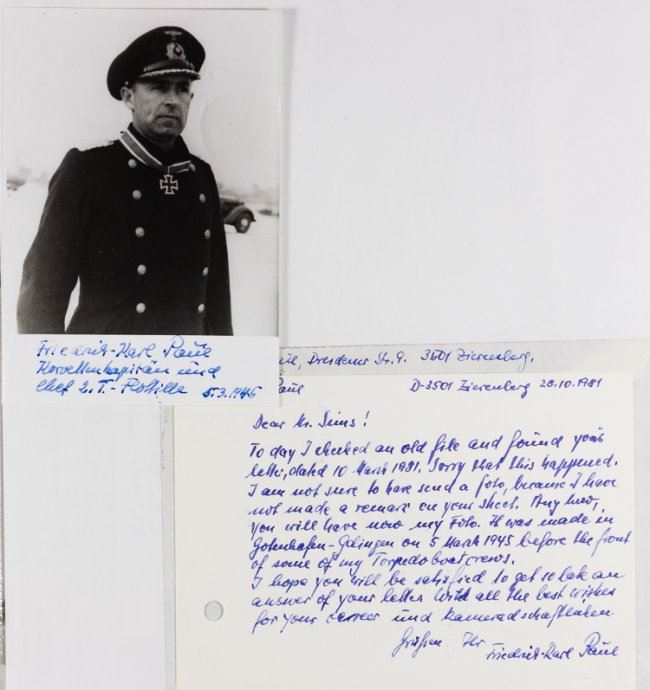 Friedrich-Karl Paul
Korvettenkapitän und
Chef 2.T.-Flotille 5.3.1945
Dresdener Str. 9. 3501 Zierenberg,
Paul D-3501 Zierenberg 28.10.1981
Dear Mr. Sims!
To day I checked an old file and found your
letter, dated 10 March 1981. Sorry that this happened.
I am not sure to have send a foto, because I have
not made a remark on your sheet. Any how,
you will have now my Foto. It was made in
Gotenhafen-Gdingen on 5 March 1945 before the front
of some of my Torpedoboatcrews.
I hope you will be satisfied to get so late an
answer of your letter. With all the best wishes
for your carreer und kameradschaftlichen
Grüßen Ihr
Friedrich-Karl Paul